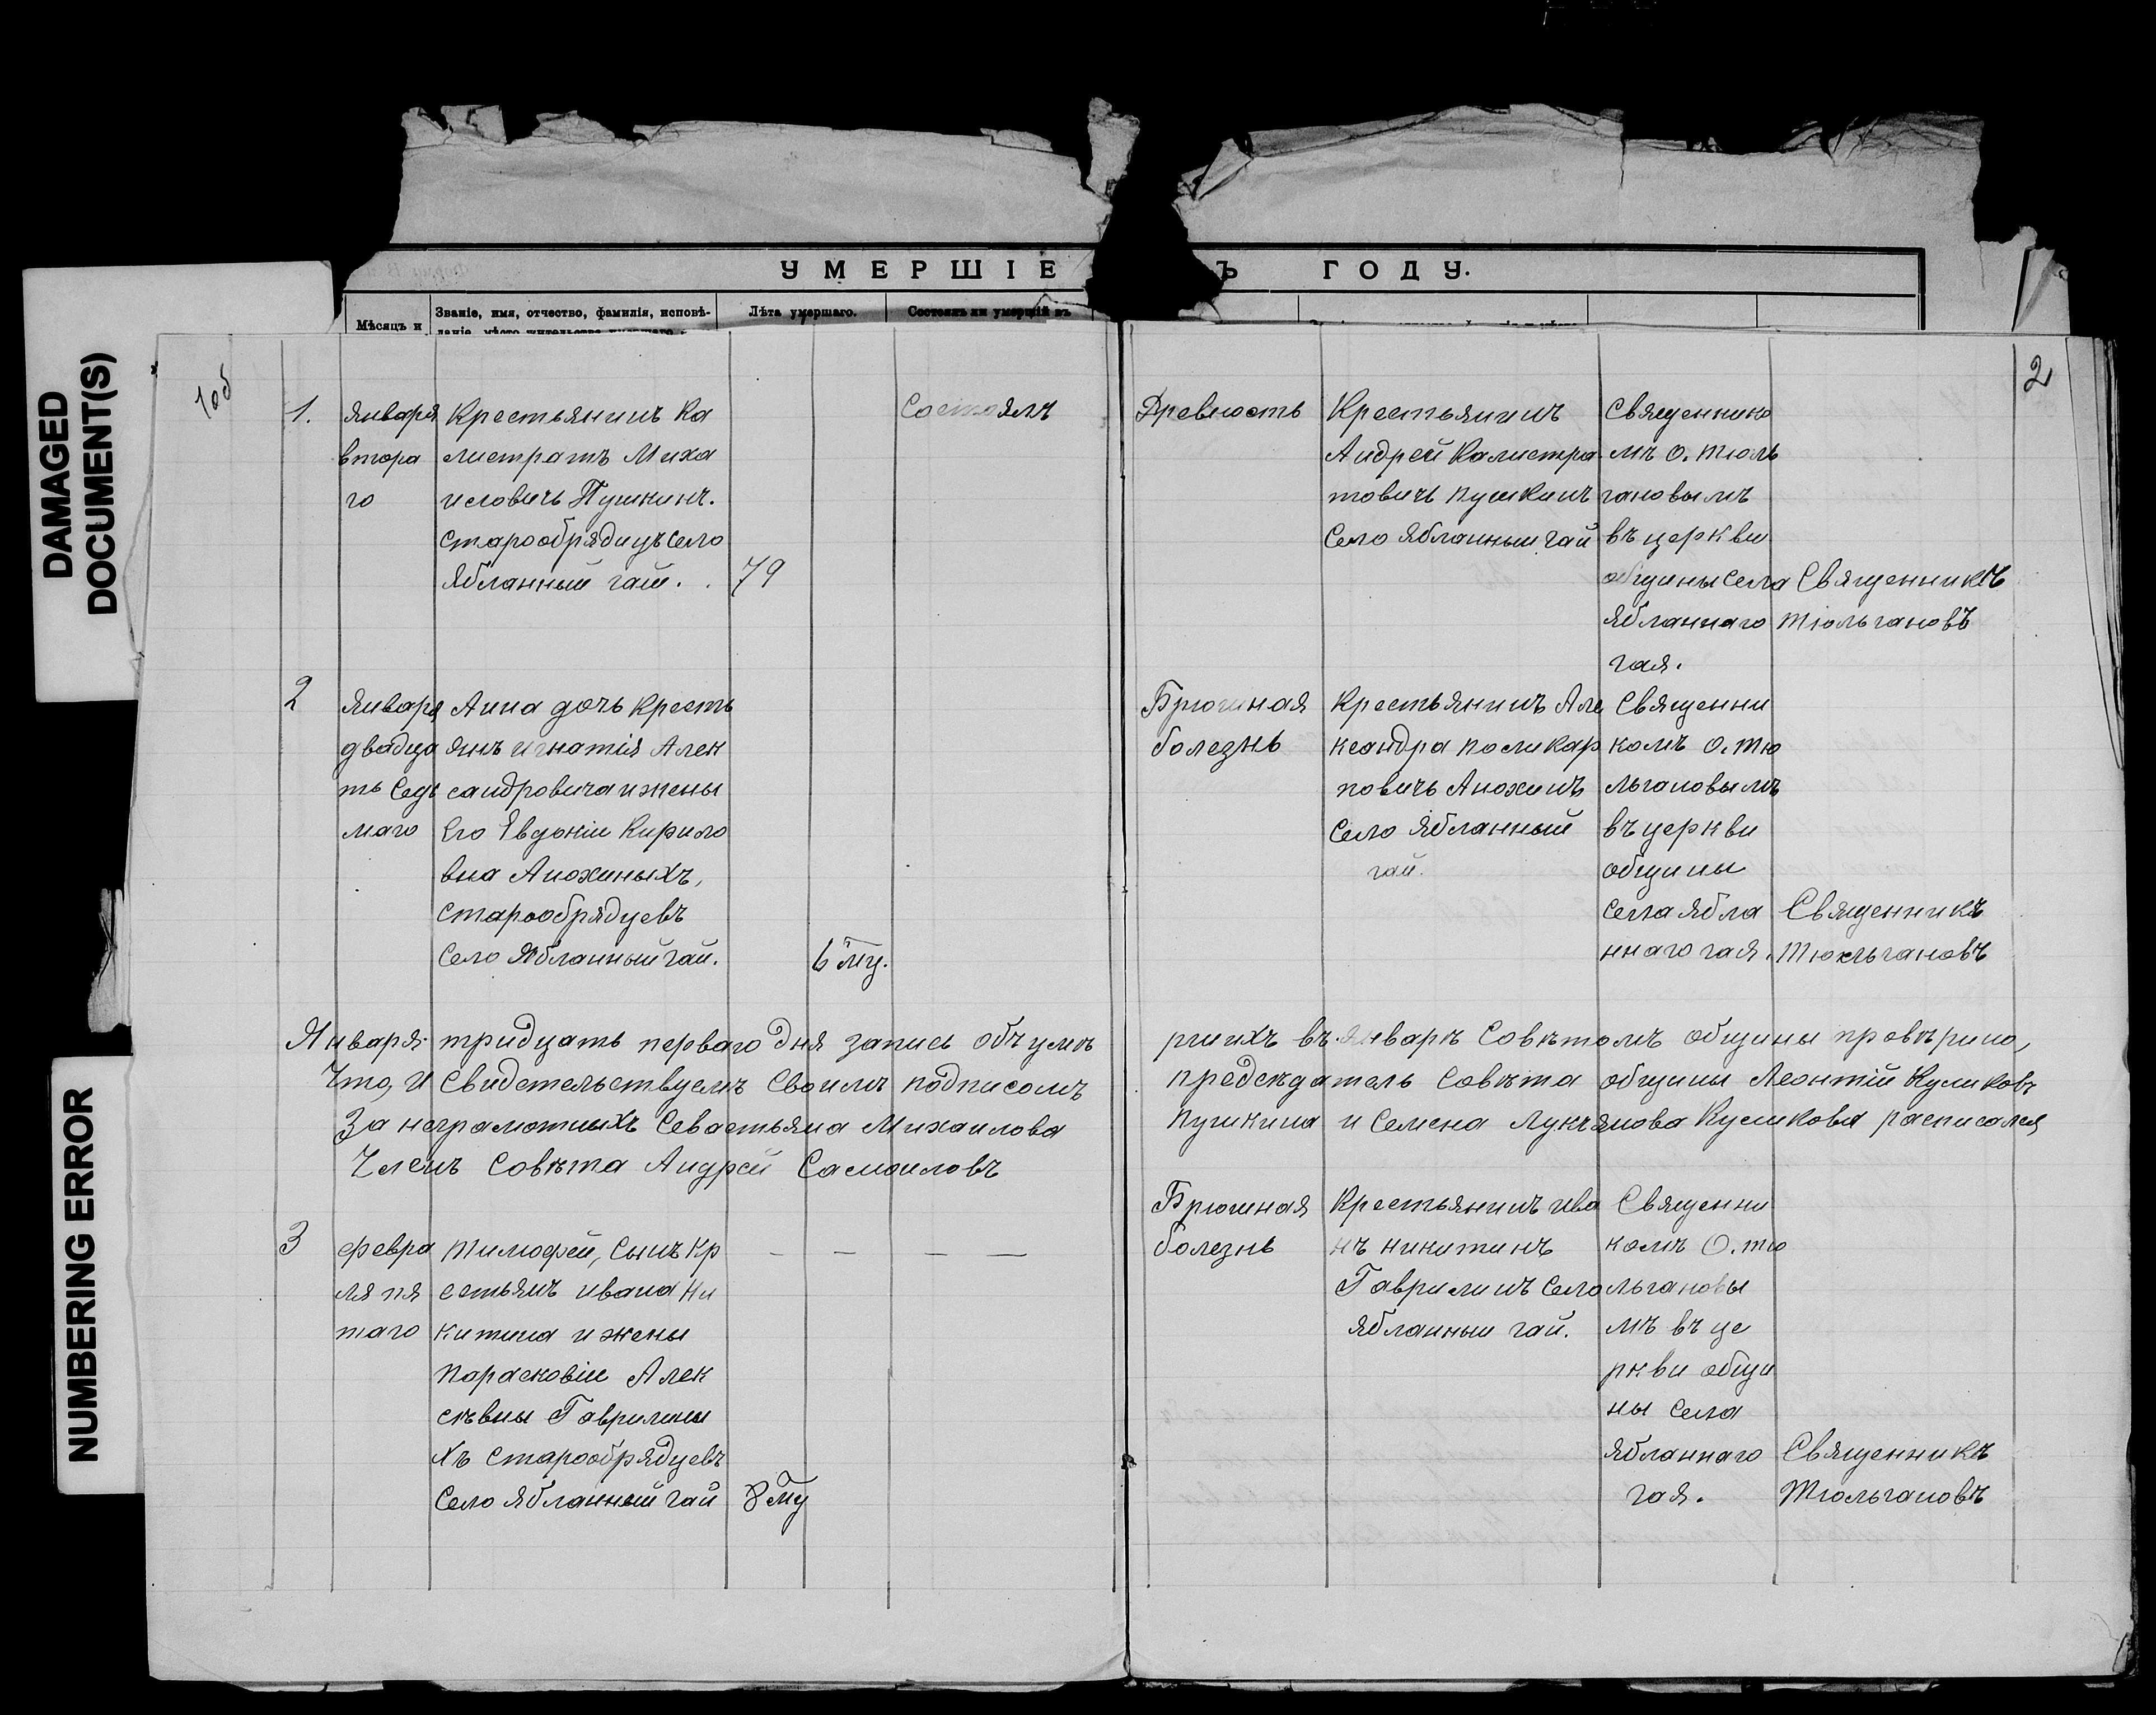 УМЕРШІЕ Ъ ГОДУ.
Мѣсяцъ и
Званіе, имя, отчество, фамилія, исповѣ-
Лѣта умершаго.
Состоялъ ли умершій въ
DAMAGED
DOCUMENT(S)
NUMBERING ERROR
1об
2
1.
Января
втора
го
Крестьянинъ Ка
листратъ Миха
иловичъ Пушкинъ.
Старообрядицъ село
Яблапный гай.
79
Состоялъ
Древность
Крестьянинъ
Андрей Калистра
товичъ Пушкинъ
Село Яблапный гай
Священнико
мъ О. Тюль
гановымъ
въ церкви
общины села
Яблапнаго
гая.
Священникъ
Тюльгановъ
2
Января
двадца
ть Седь
маго
Анна дочь Кресть
янъ Игнатія Алек
сандровича и жены
Его Евдокіи Кирило
вна Анохиныхъ,
Старообрядцевъ
Село Яблапный гай.
6 мц.
Брюшная
болезнь
Крестьянинъ Але
ксандра Поликар
повичъ Анохинъ
Село Яблапный
гай.
Священни
комъ О. Тю
льгановымъ
въ церкви
общины
села Ябла
ннаго гая.
Священникъ
Тюльгановъ
Января тридцать перваго дня запись объ уме ршихъ въ январѣ Совѣтомъ общины провѣрино,
Что, и Свидетельствуемъ Своимъ подписомъ предсѣдатель Совѣта общины Леонтій Куликовъ
За неграмотныхъ Севастьяна Михаилова Пушкина и Семена Лукъянова Куликова расписался
Членъ Совѣта Андрей Самоиловъ
3
Февра
ля пя
таго
Тимофей, Сынъ Кр
естьянъ Ивана Ни
китина и жены
Парасковіи Алек
сѣвны Гаврилины
хъ Старообрядцевъ
Село Яблапный гай
8 мц
Брюшная
болезнь
Крестьянинъ Ива
нъ Никитинъ
Гаврилинъ Село
Яблапный гай.
Священни
комъ О. Тю
льгановы
мъ въ це
ркви общи
ны села
Яблапнаго
гая.
Священникъ
Тюльгановъ